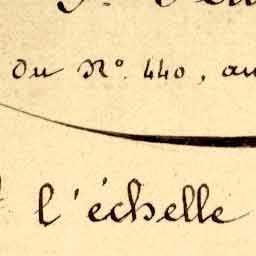 du N° 440, au
l'échelle